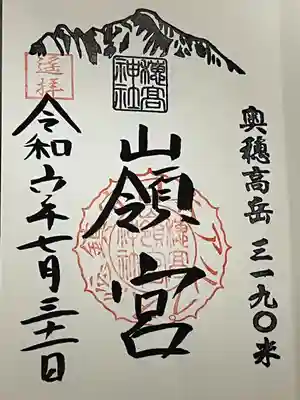 奥穂高岳 三一九〇米
穂高神社
嶺宮
遥拝
令和六年七月三十一日